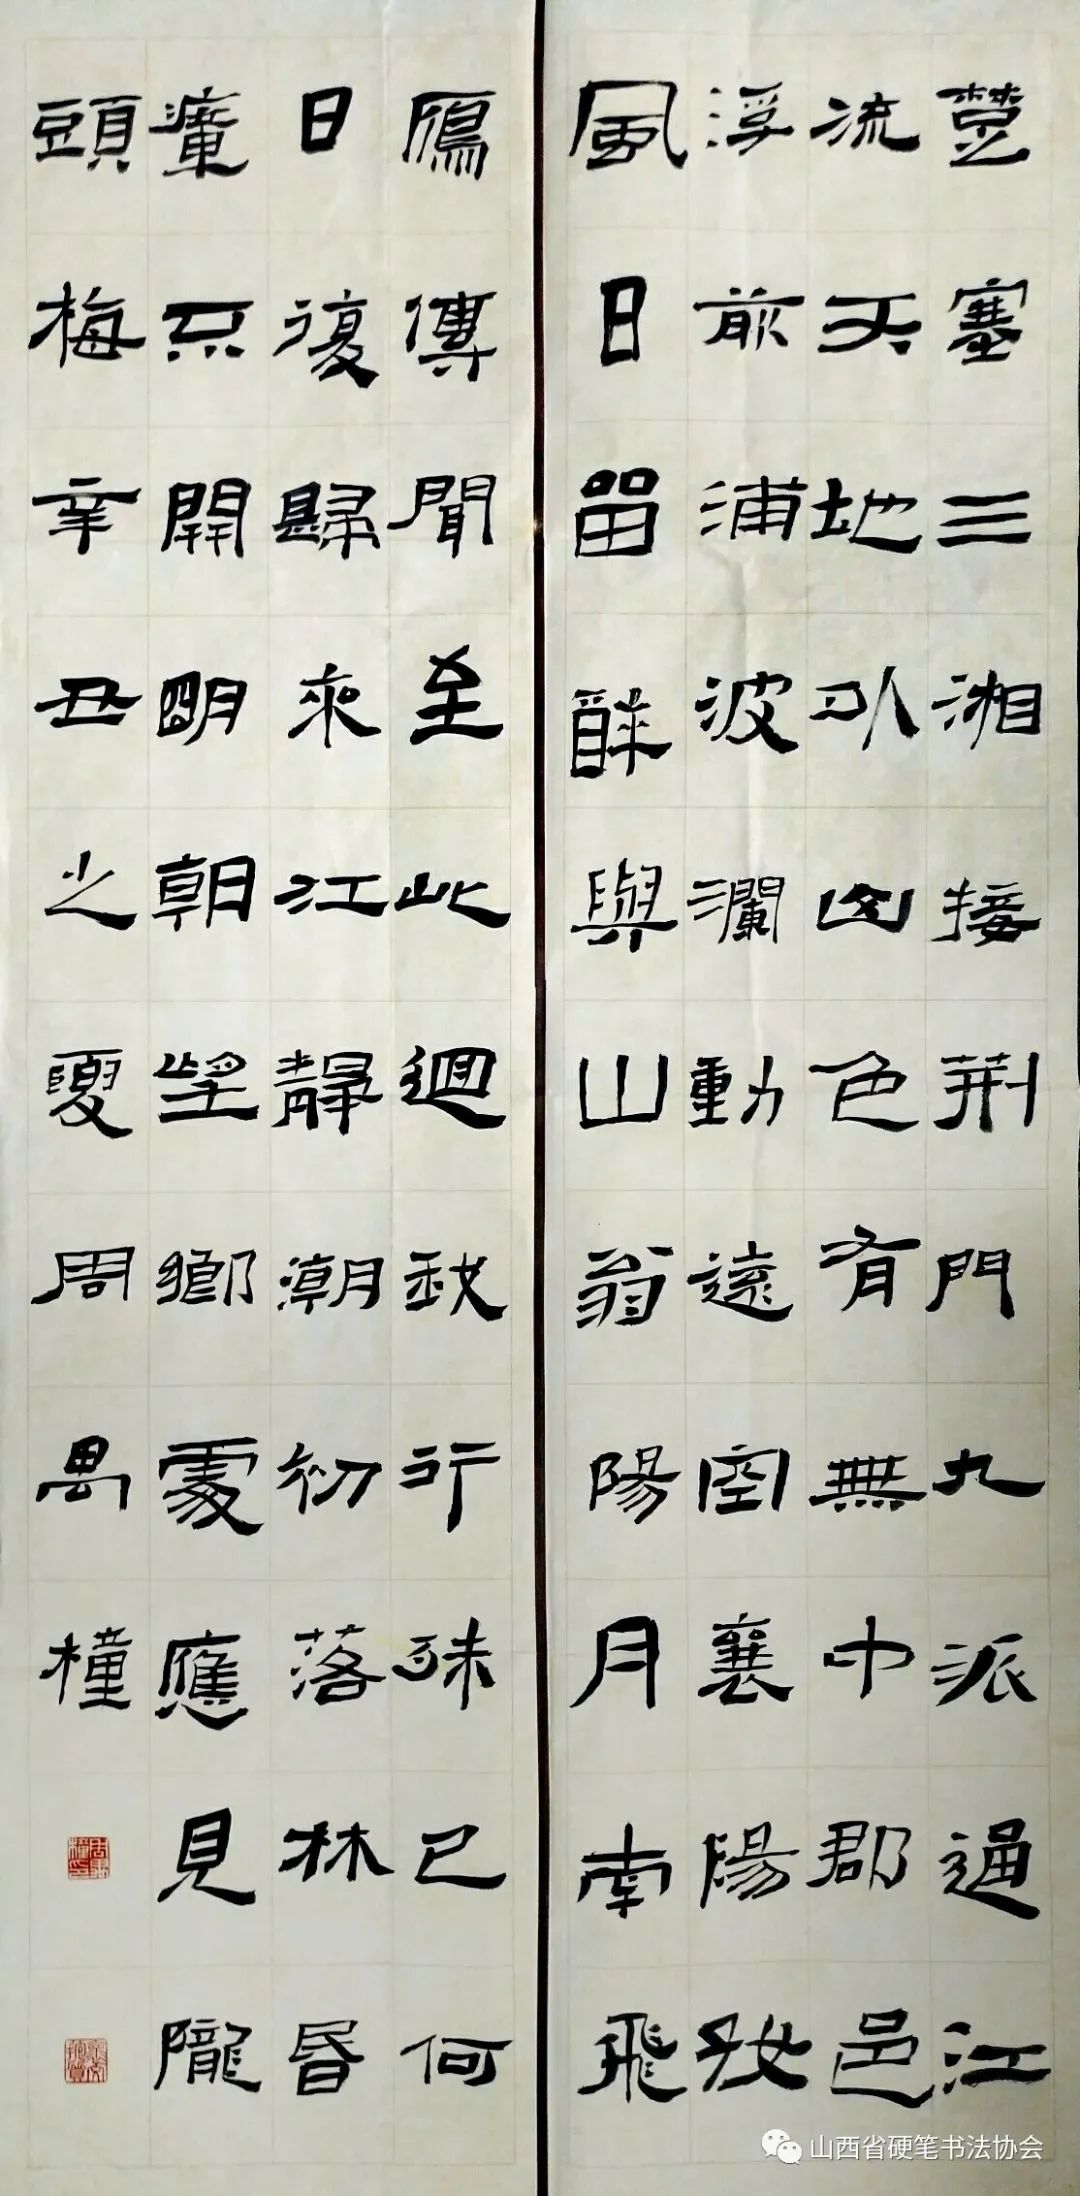 楚塞三湘接荊門九派通江
流天地外山色有無中郡邑
浮前浦波瀾動遠空襄陽好
風日留醉與山翁陽月南飛
鴈傳聞至此迴我行殊已何
日復歸來江靜潮初落林昏
瘴不開明朝望鄉處應見隴
頭梅辛丑之夏周禺橦
山西省硬笔书法协会